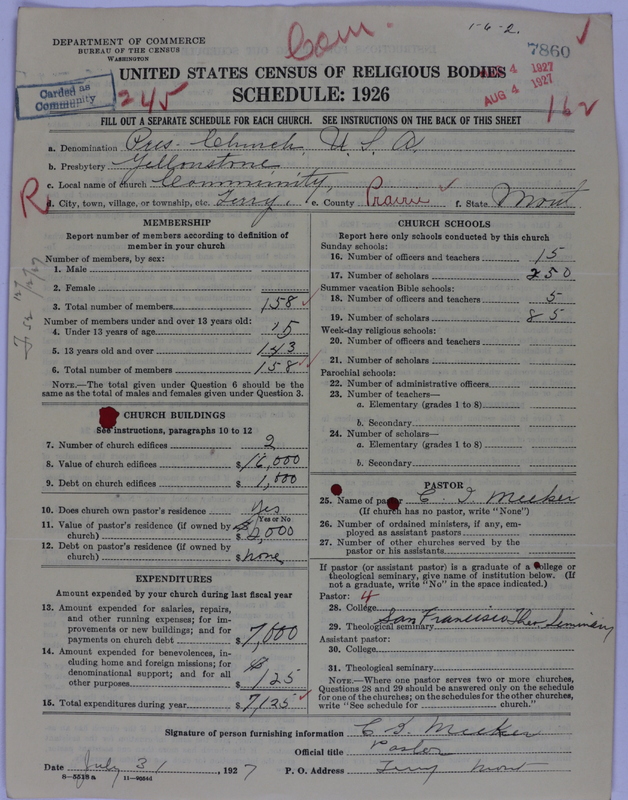 Com 1-6-2.
DEPARTMENT OF COMMERCE
BUREAU OF THE CENSUS
WASHINGTON
7860
AUG 4 1927
AUG 4 1927
UNITED STATES CENSUS OF RELIGIOUS BODIES
Carded as
Community
245
SCHEDULE: 1926
162
FILL OUT A SEPARATE SCHEDULE FOR EACH CHURCH. SEE INSTRUCTIONS ON THE BACK OF THIS SHEET
a. Denomination Pres. Church, U. S. A.
b. Presbytery Yellowstone
c. Local name of church Community,
R
d. City, town, village, or township, etc. Terry, e. County Prairie f. State Mont
MEMBERSHIP
Report number of members according to definition of
member in your church
Number of members, by sex:
1. Male
2. Female
3. Total number of members 158
Number of members under and over 13 years old:
4. Under 13 years of age 15
5. 13 years old and over 143
6. Total number of members 158
NOTE.—The total given under Question 6 should be the
same as the total of males and females given under Question 3.
CHURCH BUILDINGS
See instructions, paragraphs 10 to 12
7. Number of church edifices 2
8. Value of church edifices $ 16,000
9. Debt on church edifices $ 1,000
10. Does church own pastor's residence yes
Yes or No
11. Value of pastor's residence (if owned by
church) $ 2,000
12. Debt on pastor's residence (if owned by
church) $ none
EXPENDITURES
Amount expended by your church during last fiscal year
13. Amount expended for salaries, repairs,
and other running expenses; for im-
provements or new buildings; and for
payments on church debt $ 7,000
14. Amount expended for benevolences, in-
cluding home and foreign missions; for
denominational support; and for all
other purposes $ 125
15. Total expenditures during year $ 7125
CHURCH SCHOOLS
Report here only schools conducted by this church
Sunday schools:
16. Number of officers and teachers 15
17. Number of scholars 250
Summer vacation Bible schools:
18. Number of officers and teachers 5
19. Number of scholars 85
Week-day religious schools:
20. Number of officers and teachers
21. Number of scholars
Parochial schools:
22. Number of administrative officers
23. Number of teachers—
a. Elementary (grades 1 to 8)
b. Secondary
24. Number of scholars—
a. Elementary (grades 1 to 8)
b. Secondary
PASTOR
25. Name of pastor C. I. Meeker
(If church has no pastor, write "None")
26. Number of ordained ministers, if any, em-
ployed as assistant pastors
27. Number of other churches served by the
pastor or his assistants
If pastor (or assistant pastor) is a graduate of a college or
theological seminary, give name of institution below. (If
not a graduate, write "No" in the space indicated.)
Pastor: 4
28. College
29. Theological seminary San Francisco Theo Seminary
Assistant pastor:
30. College
31. Theological seminary
NOTE.—Where one pastor serves two or more churches,
Questions 28 and 29 should be answered only on the schedule
for one of the churches; on the schedules for the other churches,
write "See schedule for church."
Signature of person furnishing information C. I. Meeker
Official title Pastor
Date July 31, 1927 P. O. Address Terry Mont
8—5518a 11—9054d